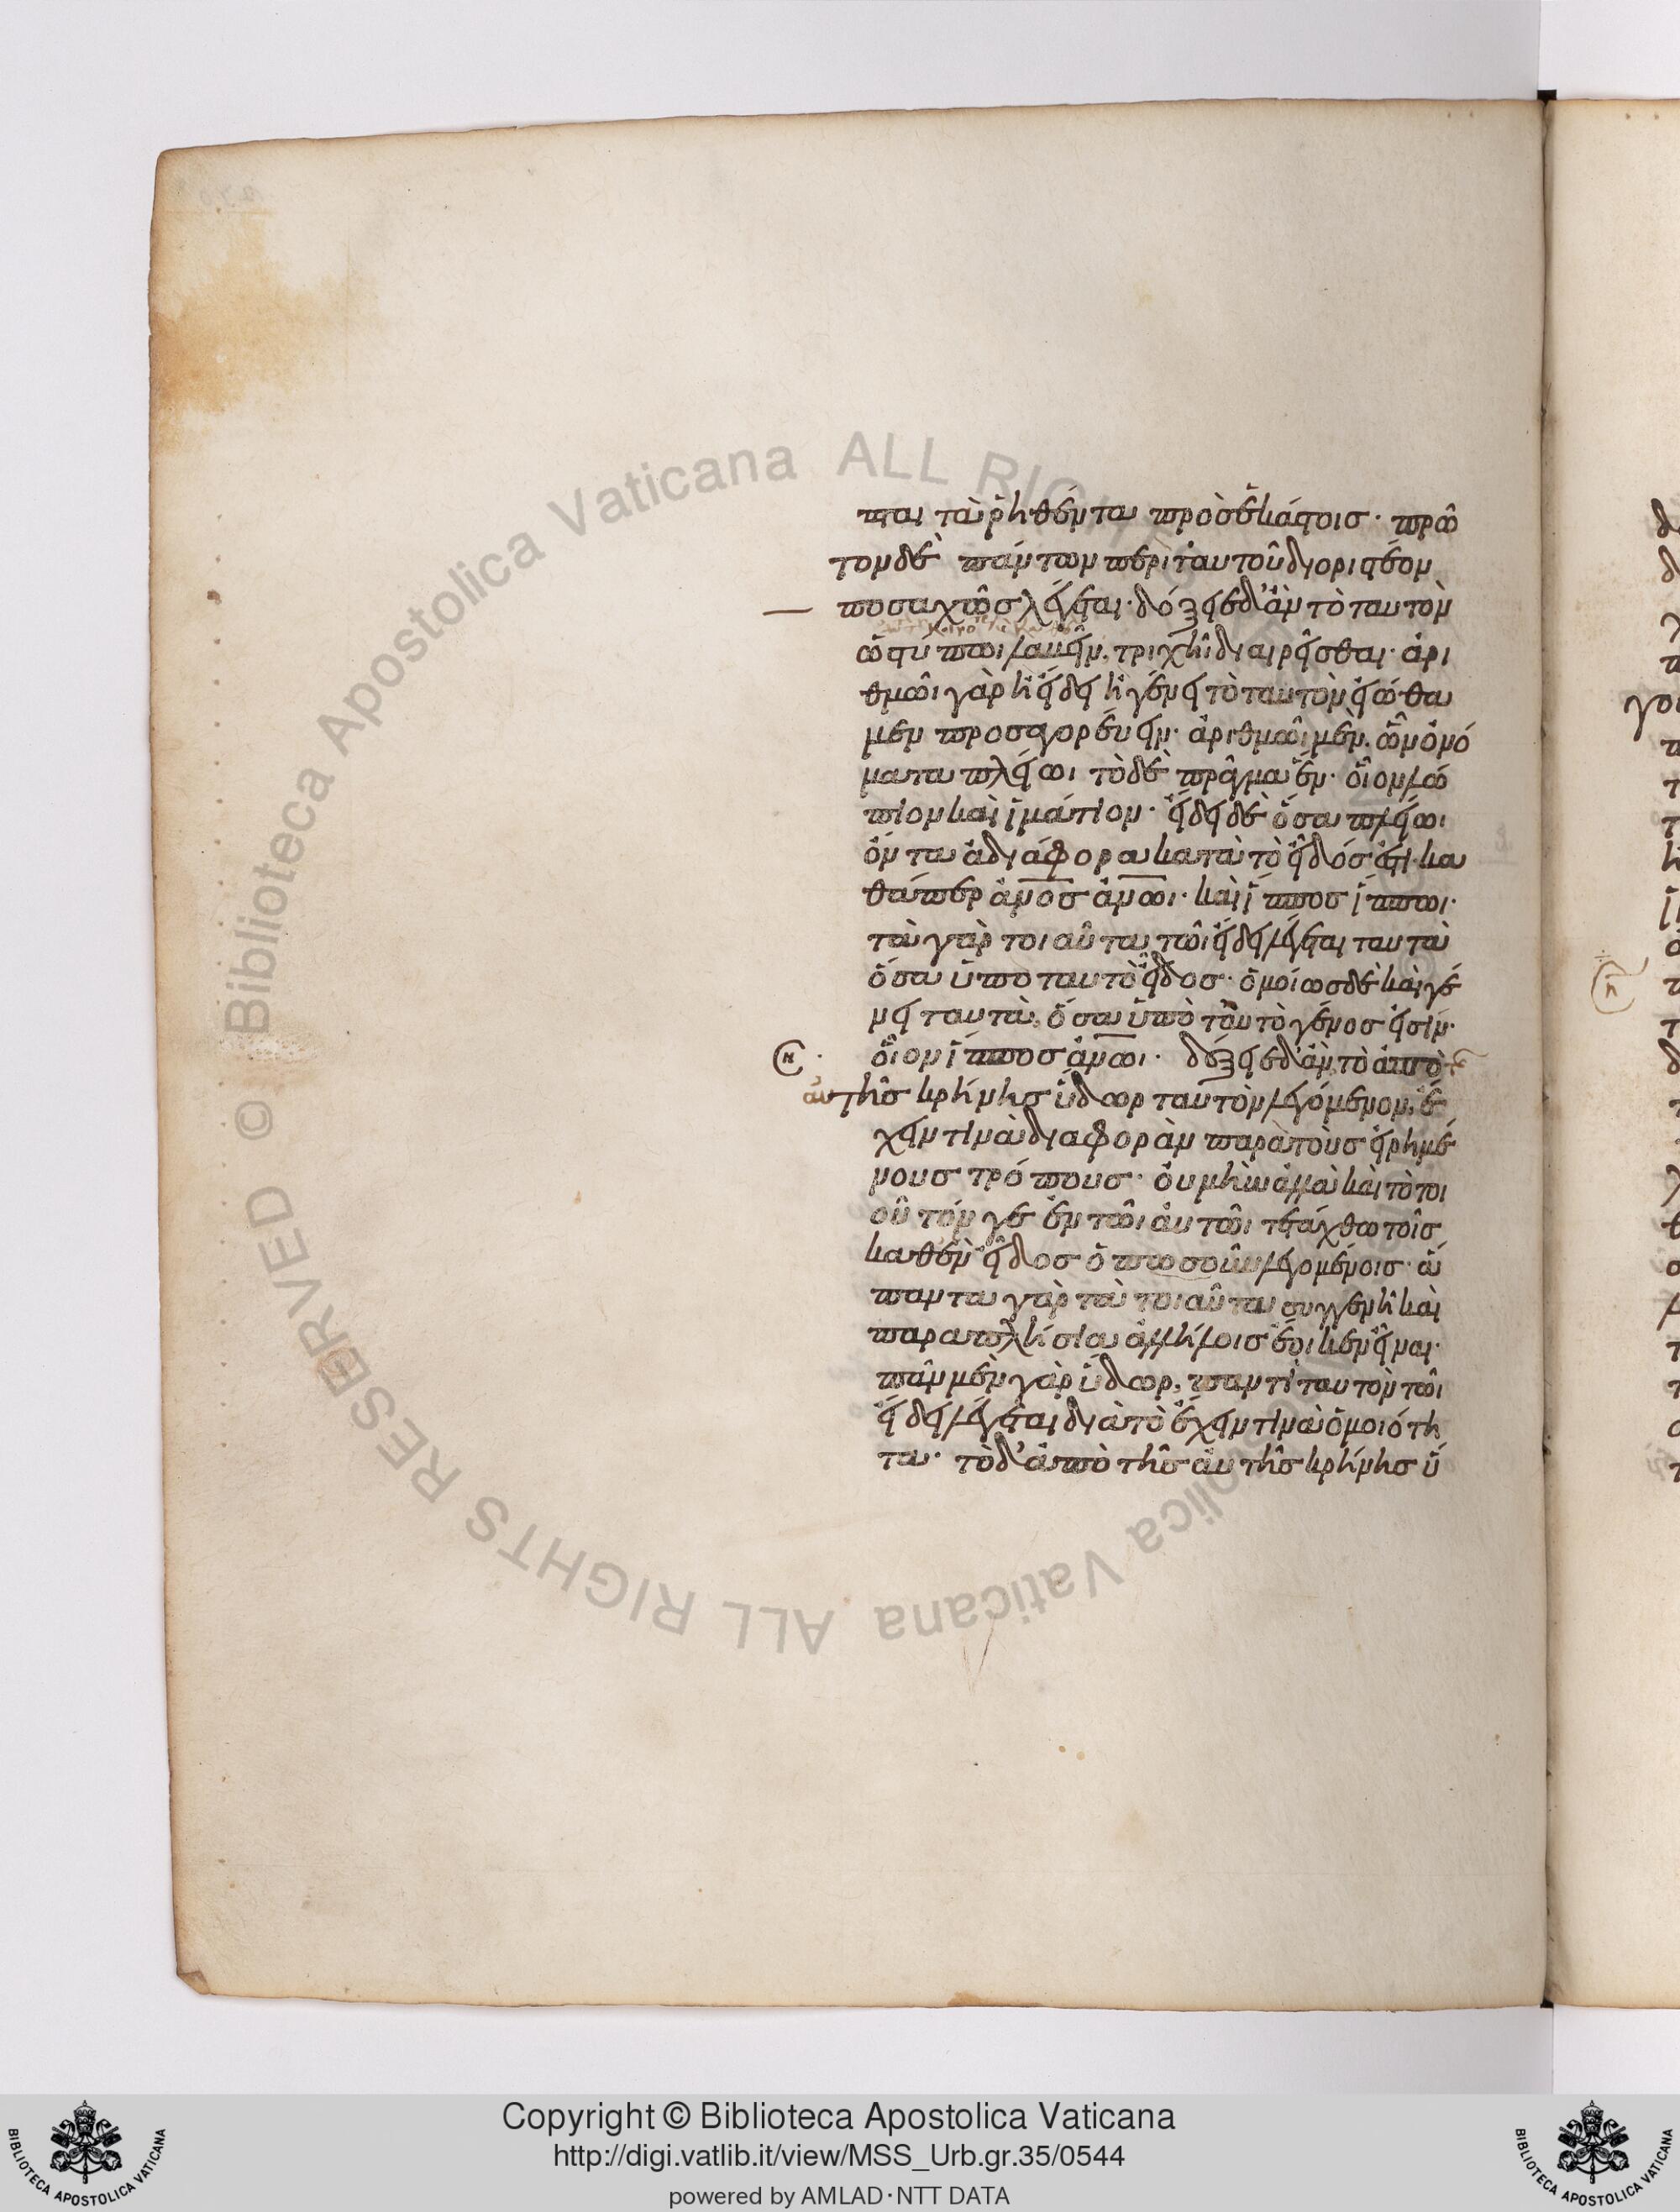 ται τὰ ῥηθέντα πρὸς ἑκάστοις· πρῶ
τον δὲ πάντων περὶ ταυτοῦ διοριστέον
ποσαχῶς λέγεται· δόξειε δ' ἂν τὸ ταυτὸν
ὡς τύπωι λαβεῖν, τριχῆι διαιρεῖσθαι· ἀρι
θμῶι γὰρ ἢ εἴδει ἢ γένει τὸ ταυτὸν εἰώθα
μεν προσαγορεύειν· ἀριθμῶι μὲν, ὧν ὀνό
ματα πλείωι τὸ δὲ πρᾶγμα ἕν· οἷον λώ
πιον καὶ ἱμάτιον· εἴδει δὲ ὅσα πλείωι
ὄντα ἀδιάφορα κατὰ τὸ εἶδός ἐστι· κα
θάπερ ἄνος ἄνωι· καὶ ἵππος ἵππωι·
τὰ γὰρ τοιαῦτα τῶι εἴδει λέγεται ταυτὰ
ὅσα ὑπὸ ταυτὸ εἶδος· ὁμοίως δὲ καὶ γέ
νει ταυτὰ, ὅσα ὑπὸ ταυτὸ γένος εἰσίν·
οἷον ἵππος ἄνωι· δόξειε δ' ἂν τὸ ἀπὸ
αὐτῆς κρήνης ὕδωρ ταυτὸν λεγόμενον, ἔ
χειν τινὰ διαφορὰν παρὰ τοὺς εἰρημέ
νους τρόπους· οὐ μὴν ἀλλὰ καὶ τὸ τοι
οῦτόν γε ἐν τῶι αὐτῶι τετάχθω τοῖς
καθ' ἓν εἶδος ὁπωσοῦν λεγομένοις· ἅ
παντα γὰρ τὰ τοιαῦτα συγγενῆ καὶ
παραπλήσια ἀλλήλοις ἔοικεν εἶναι·
πᾶν μὲν γὰρ ὕδωρ, παντὶ ταυτὸν τῶι
εἴδει λέγεται διὰ τὸ ἔχειν τινὰ ὁμοιότη
τα· τὸ δ' ἀπὸ τῆς αὐτῆς κρήνης ὕ
Copyright © Biblioteca Apostolica Vaticana
http://digi.vatlib.it/view/MSS_Urb.gr.35/0544
powered by AMLAD·NTT DATA